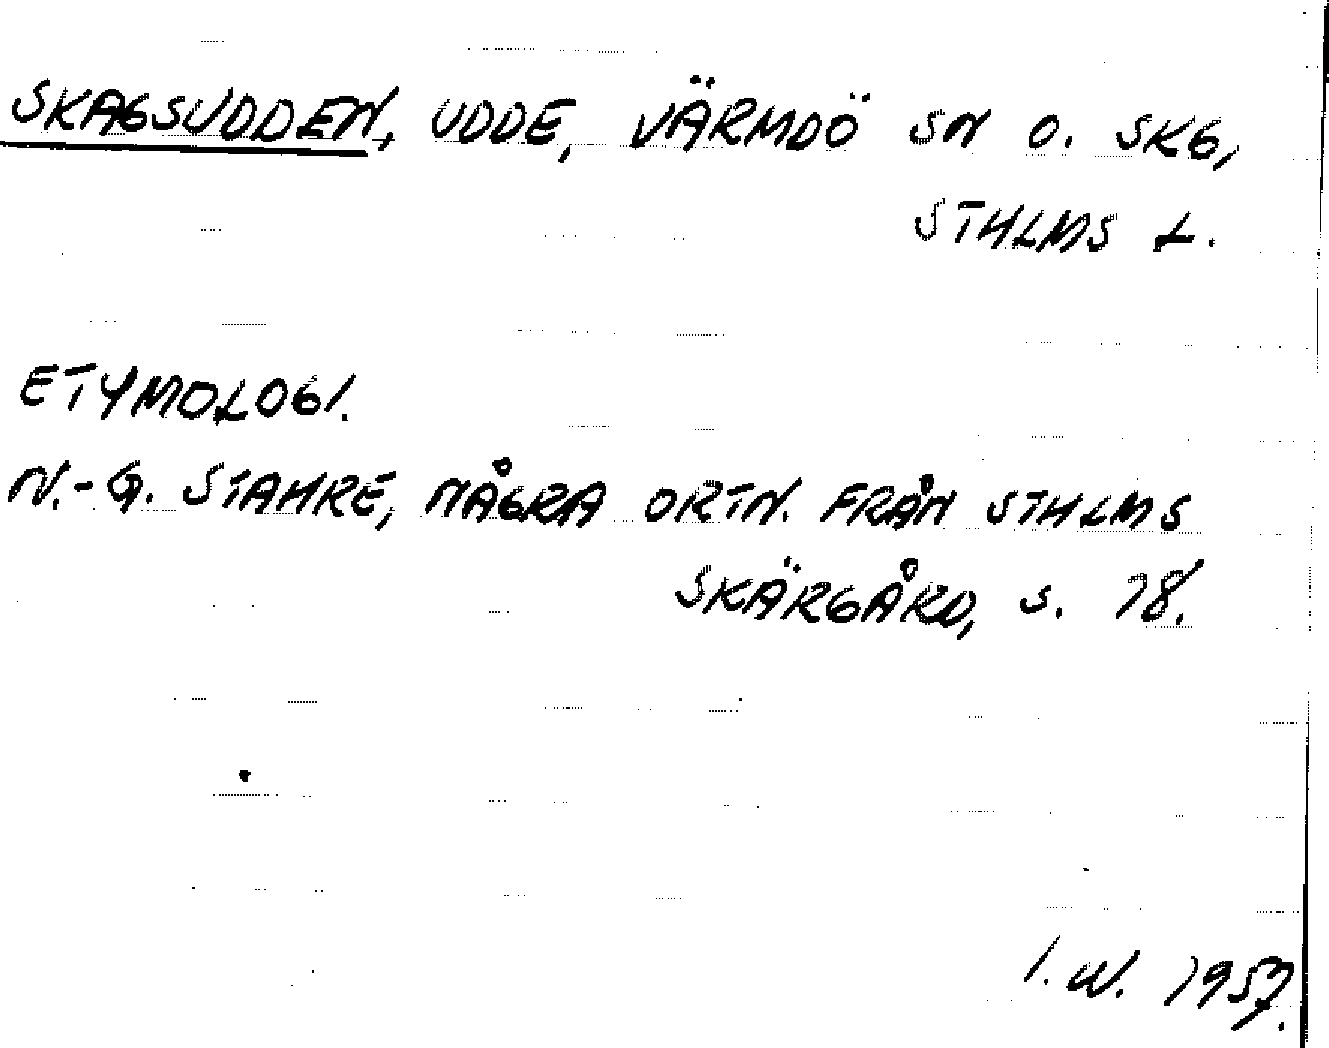 SKAGSUDDEN, UDDE, VÄRMDÖ SN O. SKG,
STHLMS L.
ETYMOLOGI.
N.-G. STAHRE, NÅGRA ORTN. FRÅN STHLMS
SKÄRGÅRD, S. 18.
I. W. 1957.